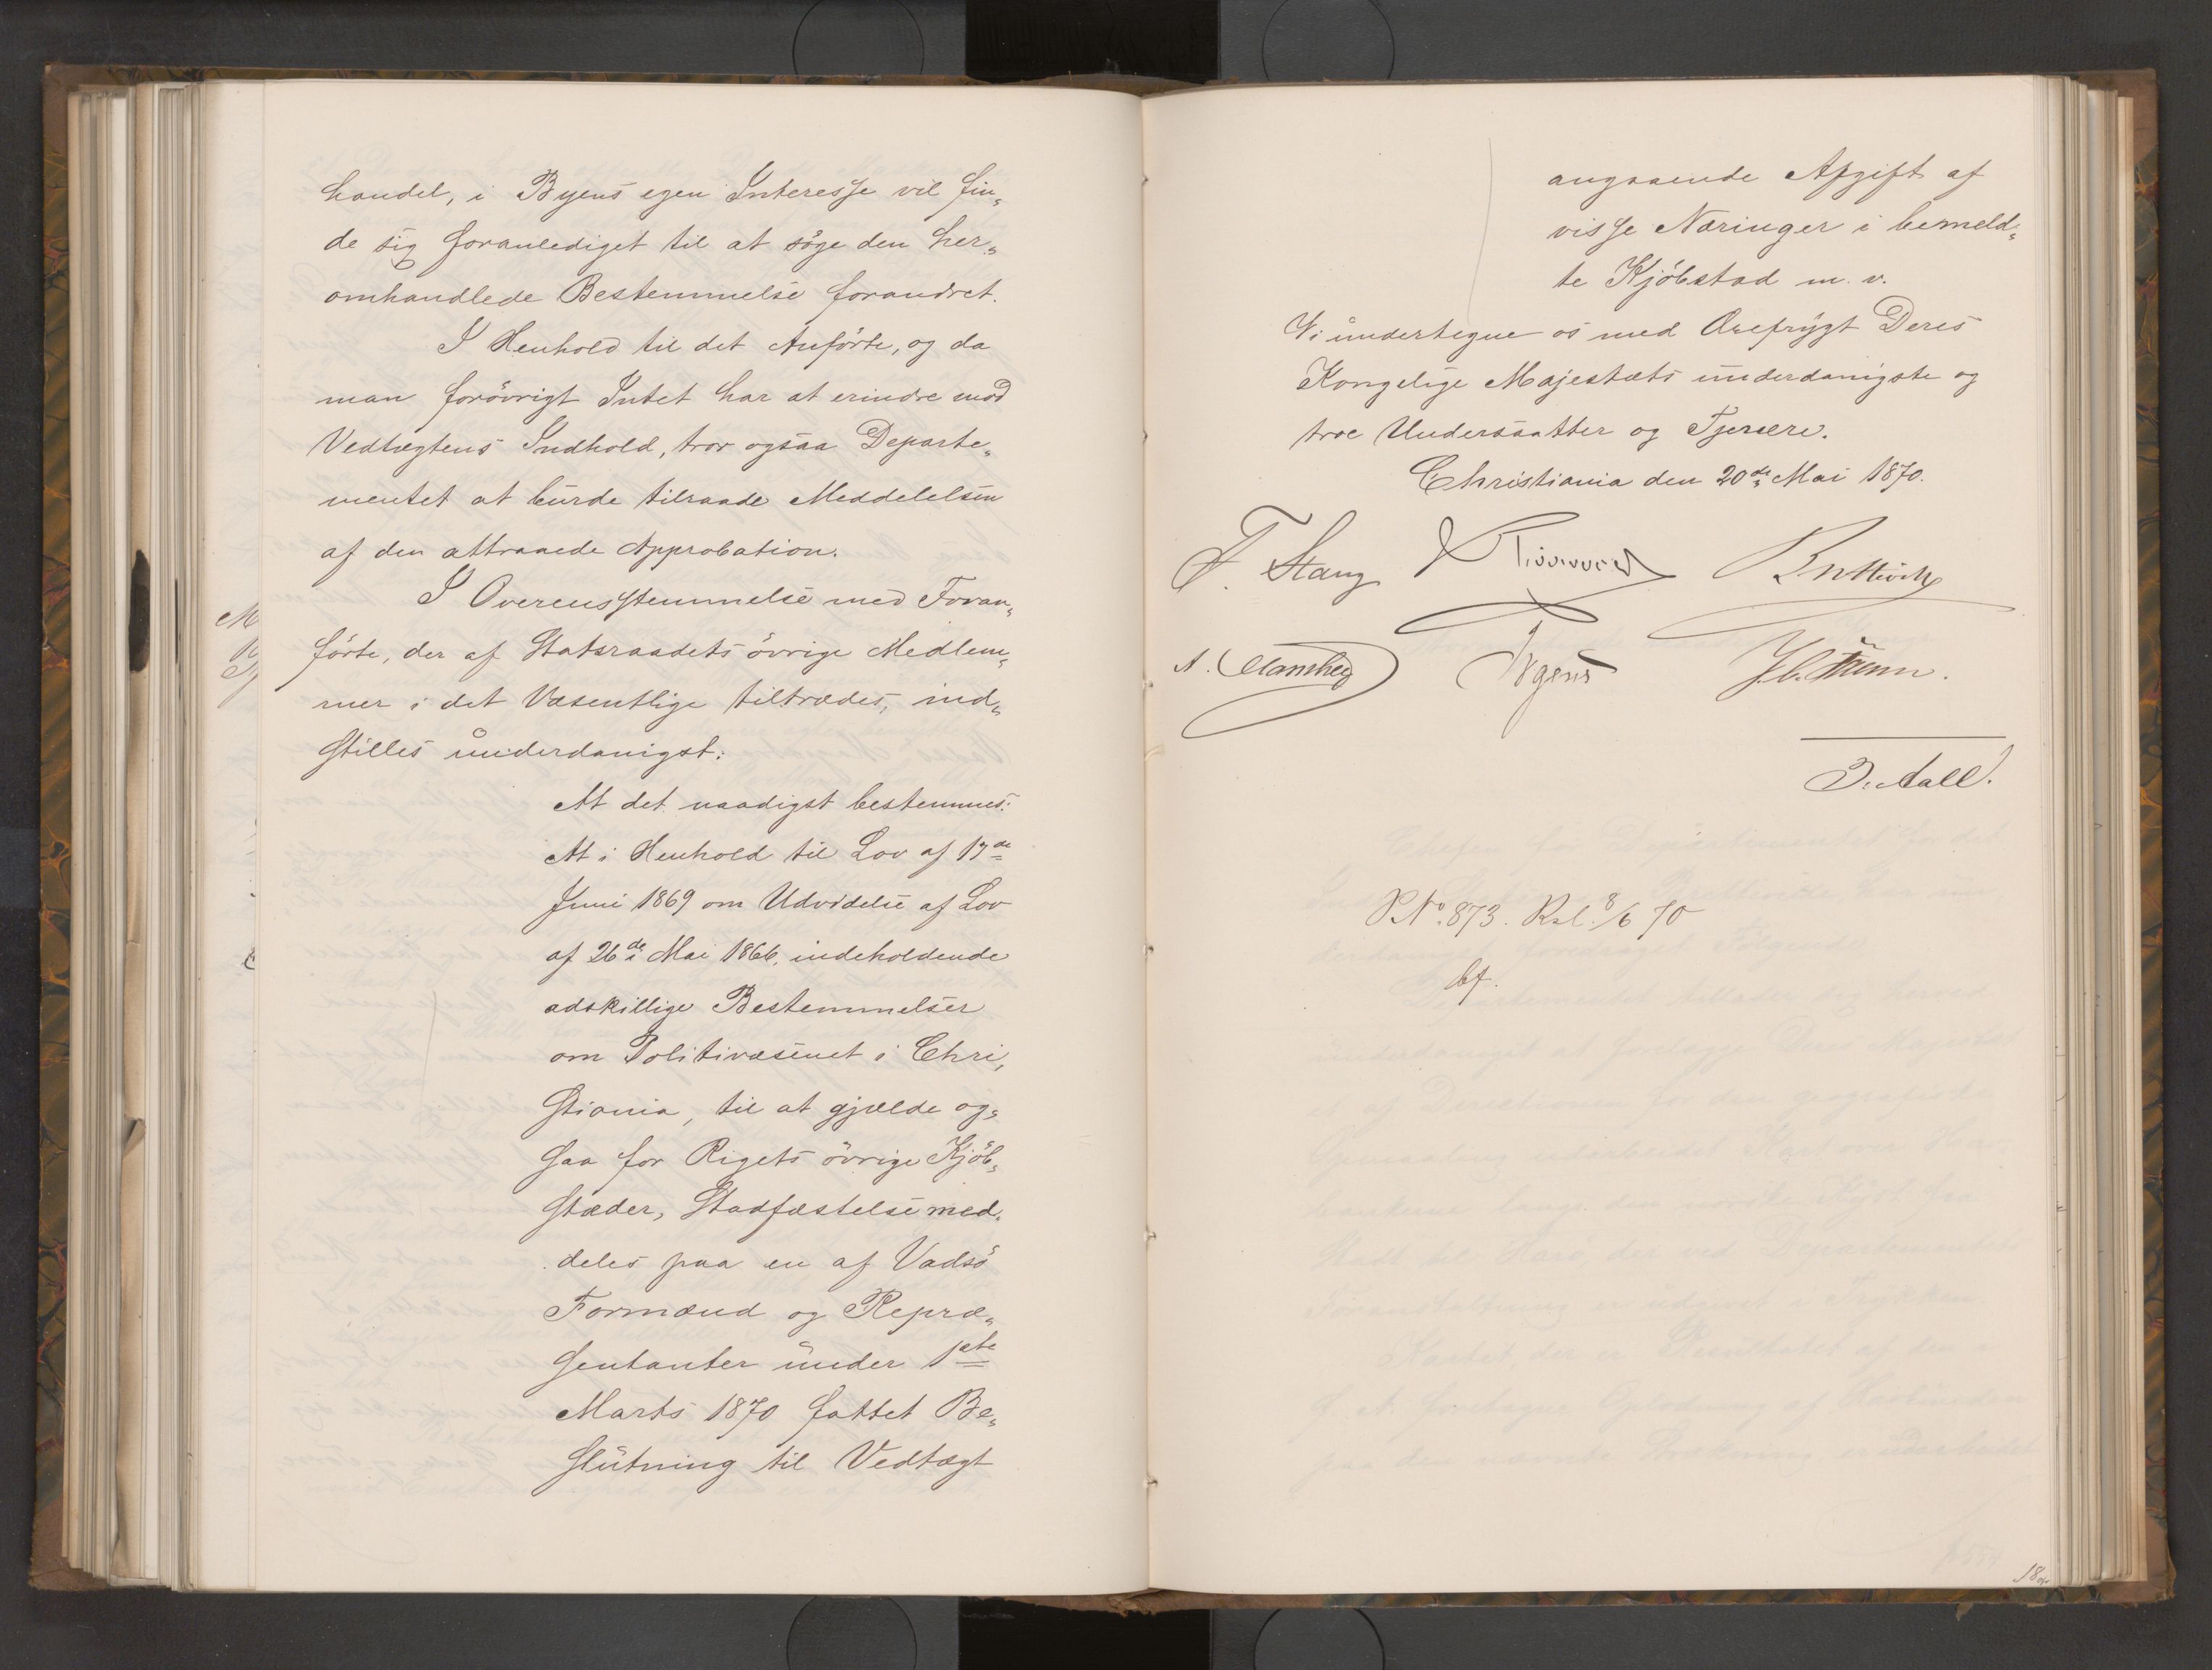 handel, i Byens egen Interesse vil fin„
de sig foranlediget til at söge den her„
omhandlede Bestemmelse forandret.
I Henhold til det Anförte, og da
man forövrigt Intet har at erindre mod
Vedtægtens Indhold, tror ogsaa Departe„
mentet at burde tilraade Meddelelsen
af den attraaede Approbation.
I Overensstemmelse med Foran„
förte, der af Statsraadets övrige Medlem„
mer i det Væsentlige tiltrædes, ind„
stilles underdanigst:
At det naadigst bestemmes:
At i Henhold til Lov af 17de
Juni 1869 om Udvidelse af Lov
af 26de Mai 1866, indeholdende
adskillige Bestemmelser
om Politivæsenet i Chri„
stiania, til at gjælde og„
saa for Rigets övrige Kjöb„
stæder, Stadfæstelse med„
deles paa en af Vadsö
Formænd og Repræ„
sentanter under 1ste
Marts 1870 fattet Be„
slutning til Vedtægt
angaaende Afgift af
visse Næringer i bemeld„
te Kjöbstad m. v.
Vi undertegne os med Ærefrygt Deres
Kongelige Majestæts underdanigste og
troe Undersaatter og Tjenere.
Christiania den 20de Mai 1870.
F. Stang
Irgens
D. Aall.
P. No. 873. Rsl. 8/6 70